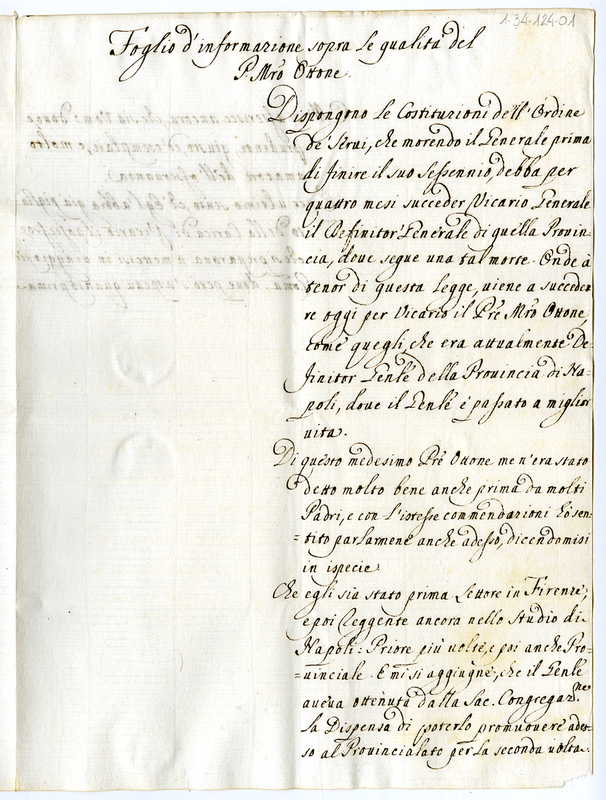 1-34-124-01
Foglio d'informazione sopra le qualità del
P. Mrõ Ottone.
Dispongono le Costituzioni dell'Ordine
de Servi, che morendo il Generale prima
di finire il suo Sessennio, debba per
quattro mesi succeder Vicario Generale
il Definitor Generale di quella Provin-
cia, dove segue una tal morte. Onde à
tenor di questa Legge, viene a succede-
re oggi per Vicario il Pre Mrõ Ottone,
come quegli, che era attualmente De-
finitor Genle della Provincia di Na-
poli, dove il Genle è passato a miglior
vita.
Di questo medesimo Pre Ottone me n'era stato
detto molto bene anche prima da molti
Padri, e con l'istesse commendazioni hò sen-
=tito parlarmene anche adesso, dicendomisi
in ispecie.
Che egli sia stato prima Lettore in Firenze,
e poi Reggente ancora nello Studio di
Napoli: Priore più volte, e poi anche Pro-
=vinciale. E mi si aggiugne, che il Genle
aveva ottenuta dalla Sac. Congregazne
la Dispensa di poterlo promuovere ades-
so al Provincialato per la seconda volta.